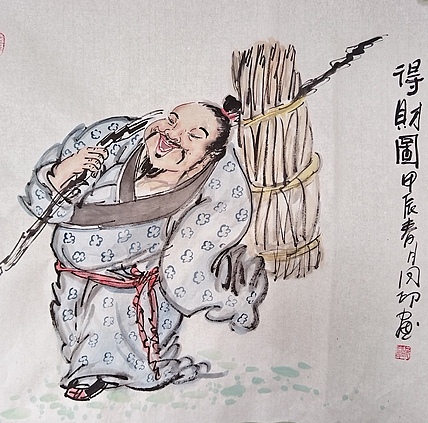 得財圖 甲辰春月 画